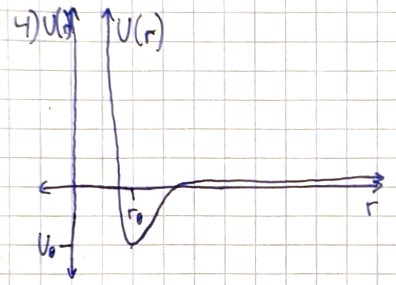 4) U(r)
U(r)
r₀
r
U₀